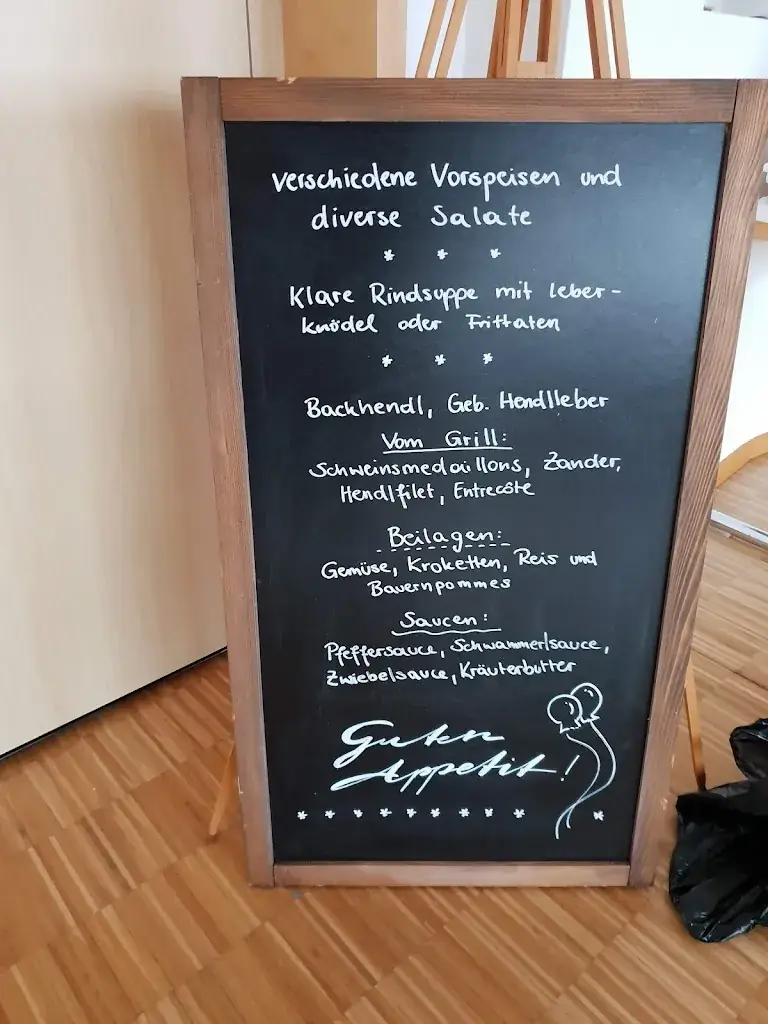 verschiedene Vorspeisen und
diverse Salate
* * *
Klare Rindsuppe mit Leber-
knödel oder Frittaten
* * *
Backhendl, Geb. Hendlleber
Vom Grill:
Schweinsmedaillons, Zander,
Hendlfilet, Entrecôte
Beilagen:
Gemüse, Kroketten, Reis und
Bauernpommes
Saucen:
Pfeffersauce, Schwammerlsauce,
Zwiebelsauce, Kräuterbutter
Guten
Appetit!